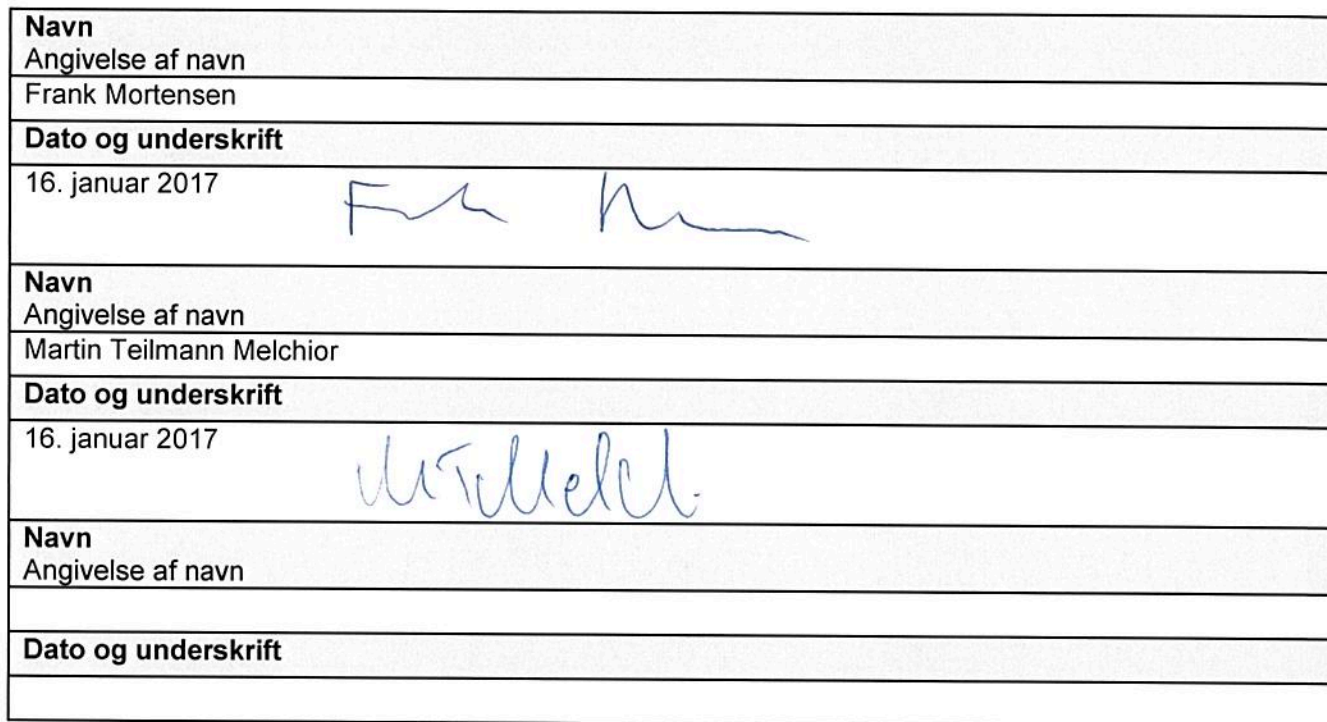 Navn
Angivelse af navn
Frank Mortensen
Dato og underskrift
16. januar 2017
Navn
Angivelse af navn
Martin Teilmann Melchior
Dato og underskrift
16. januar 2017
Navn
Angivelse af navn
Dato og underskrift